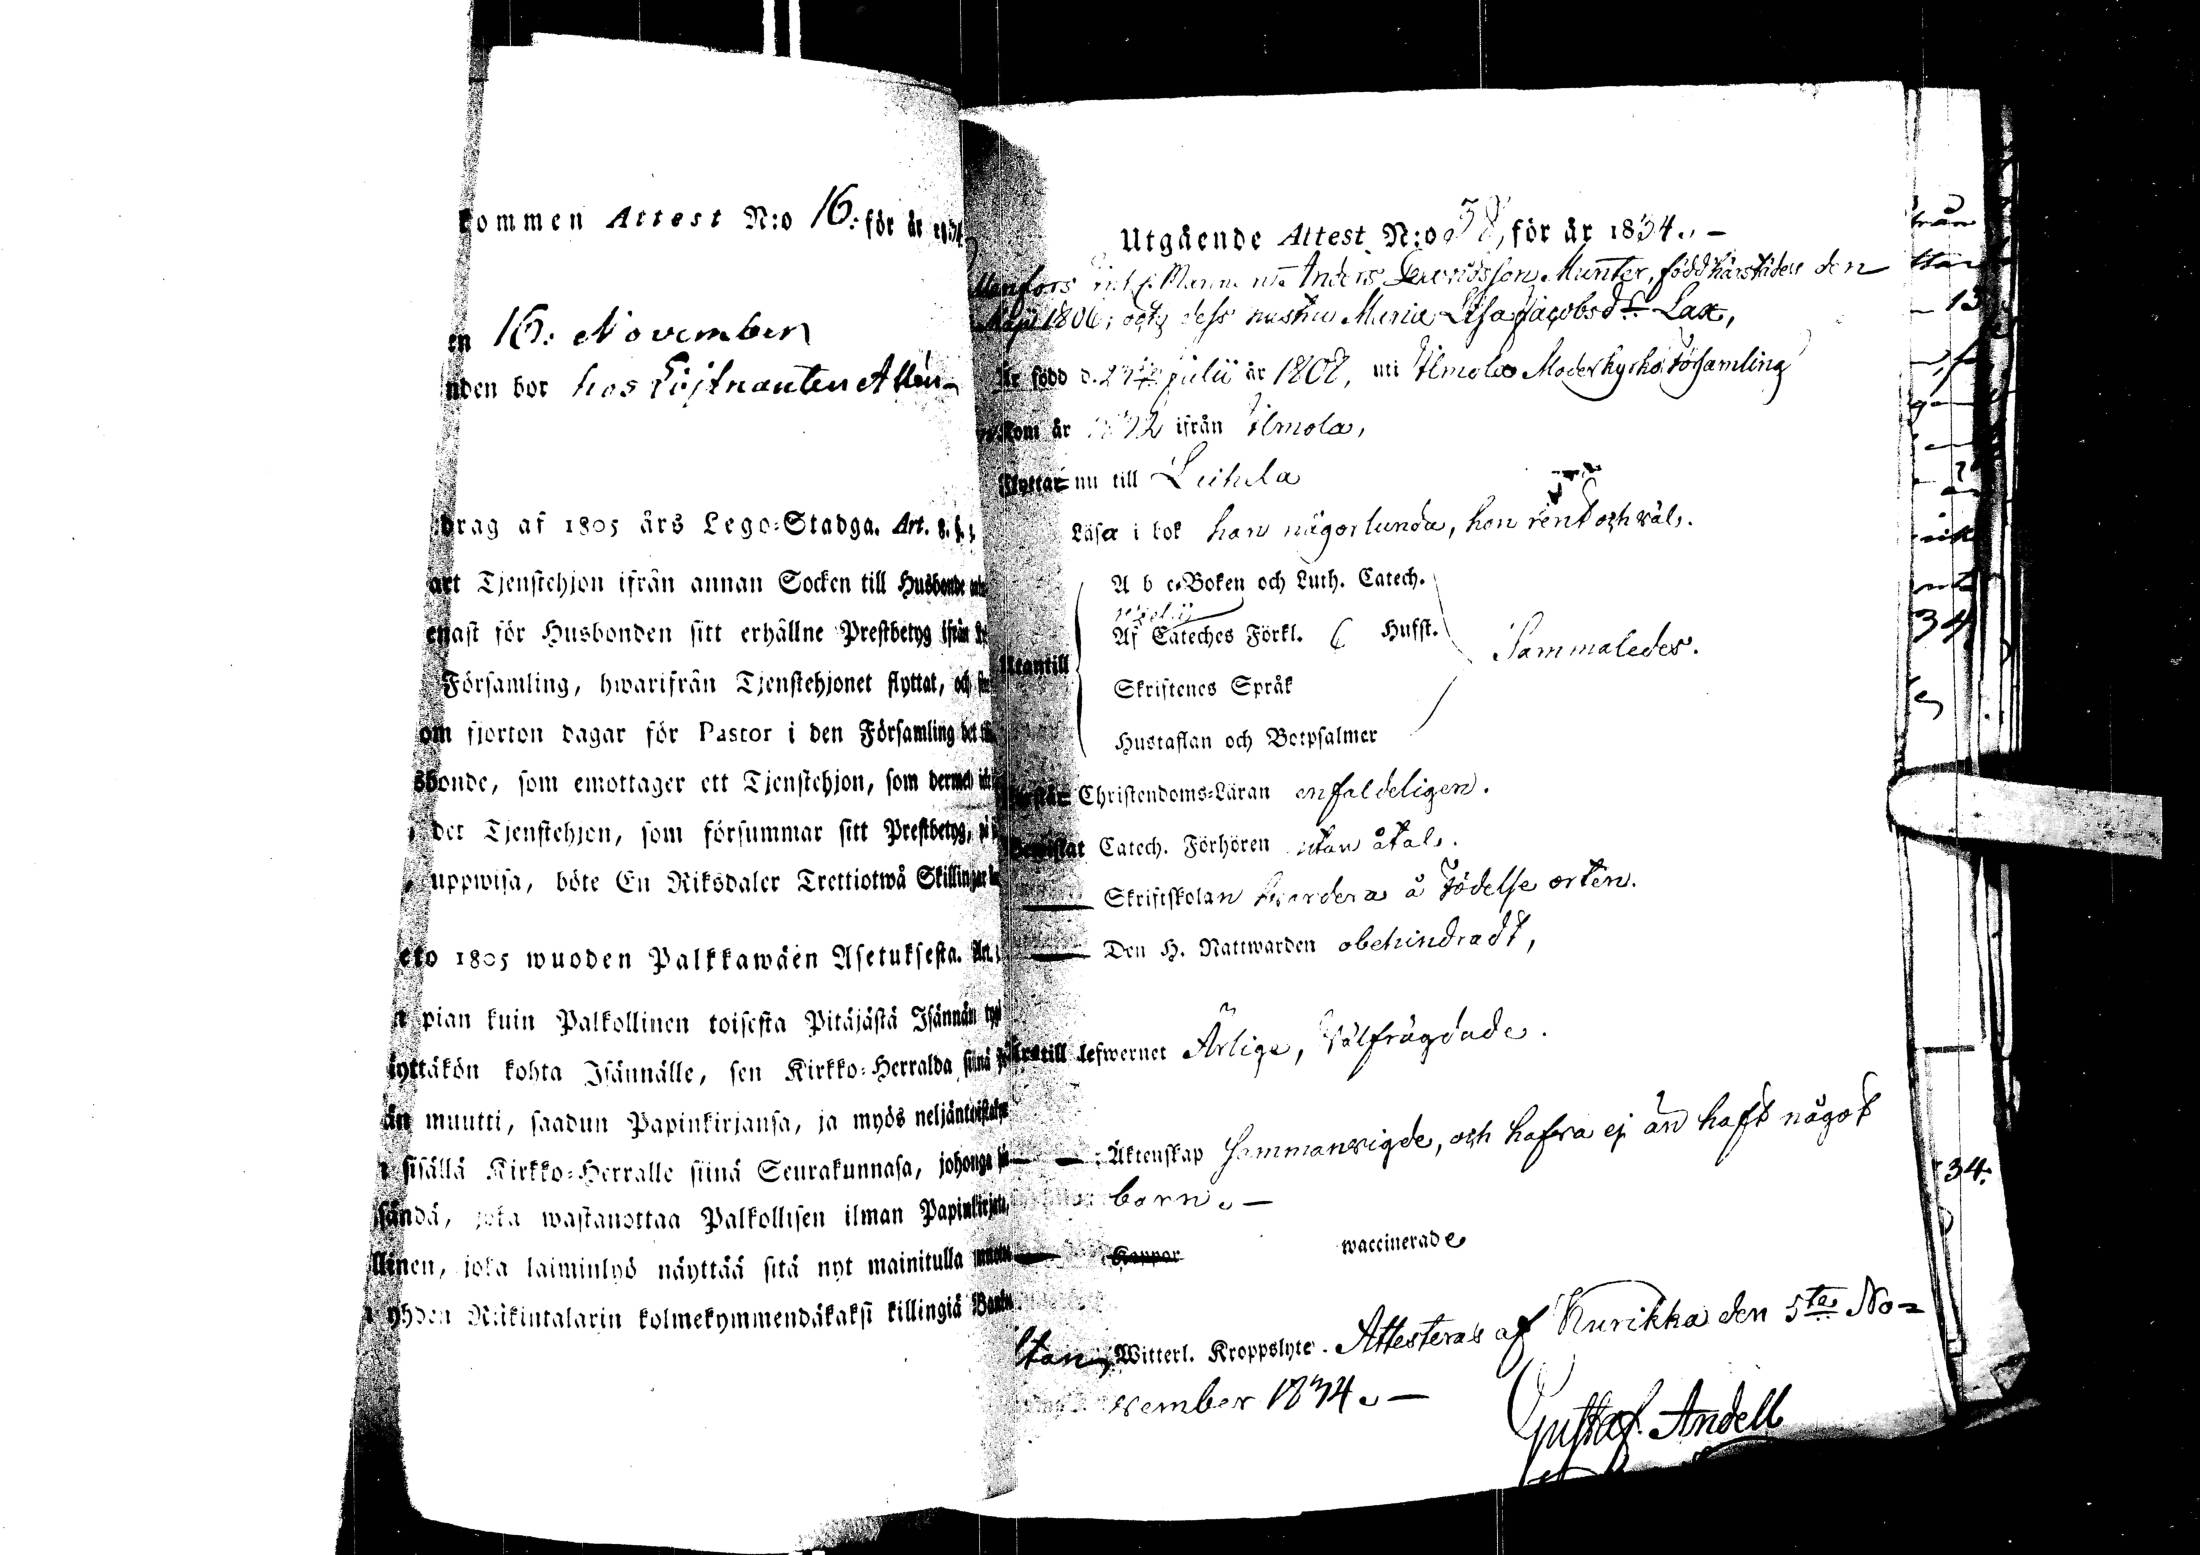 kommen Attest N:o 16. för år 1834.
en 16: November
nden bor hos Löjtnanten Allén
drag af 1805 års Lego-Stadga. Art. 8. §.
art Tjenstehjon ifrån annan Socken till Husbonde
enast för Husbonden sitt erhållne Prestbetyg ifrån
Församling, hwarifrån Tjenstehjonet flyttat, och
om fjorton dagar för Pastor i den Församling det
sbonde, som emottager ett Tjenstehjon, som dermed
det Tjenstehjon, som försummar sitt Prestbetyg,
uppwisa, böte En Riksdaler Trettiotwå Skillingar
eto 1805 wuoden Palkkawäen Asetuksesta. Art.
pian kuin Palkollinen toisesta Pitäjästä Isännän
äyttäkön kohta Isännälle, sen Kirkko-Herralda siinä
än muutti, saadun Papinkirjansa, ja myös neljäntoistakym
sisällä Kirkko-Herralle siinä Seurakunnasa, johonga
sändä, joka wastanottaa Palkollisen ilman Papinkirjata,
llinen, joka laiminlyö näyttää sitä nyt mainitulla
yhden Riikintalarin kolmekymmendäkaksi killingiä Banko
Utgående Attest N:o 58, för år 1834. –
Anders Munter, född härstädes den
Maji 1806, och dess hustru Maria Lisa Jacobsdr Lax,
Är född d. 27 Julii år 1808, uti Ilmola Moderkyrko Församling
kom år 1832 ifrån Ilmola,
Flyttar nu till Leihela
Läsa i bok han någorlunda, hon rent och väl.
A b c-Boken och Luth. Catech.
Af Cateches Förkl. Hufst.
Utantill
Sammaledes.
Skriftenes Språk
Hustaflan och Botpsalmer
Förstår Christendoms-Läran enfaldeligen.
Bewistat Catech. Förhören utan åtal.
Skriftskolan hvardera å Födelse orten.
Den H. Nattwarden obehindradt,
till lefwernet Ärlige, Välfrägdade.
Äktenskap sammanvigde, och hafva ej än haft något
barn. –
Koppor waccinerade
Utan Witterl. Kroppslyte. Attesteras af Kurikka den 5te No-
vember 1834. –
Gustaf Andell